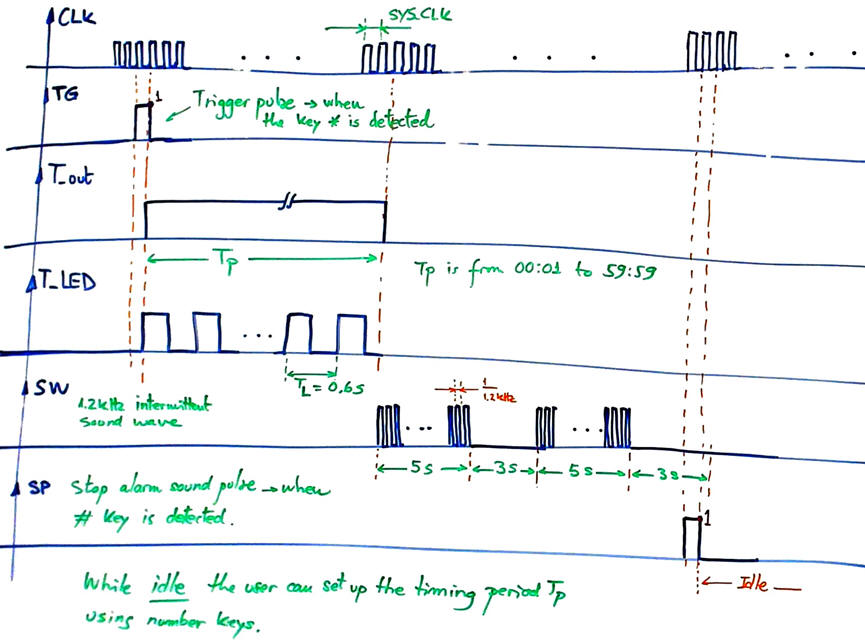 CLK
SYS.CLK
TG
1
Trigger pulse → when
the key * is detected
T_out
Tp
Tp is from 00:01 to 59:59
T_LED
TL = 0,6s
SW
1.2kHz intermittent
sound wave
1/1.2kHz
5s
3s
5s
3s
SP
Stop alarm sound pulse → when
# key is detected.
1
Idle
While idle the user can set up the timing period Tp
using number keys.